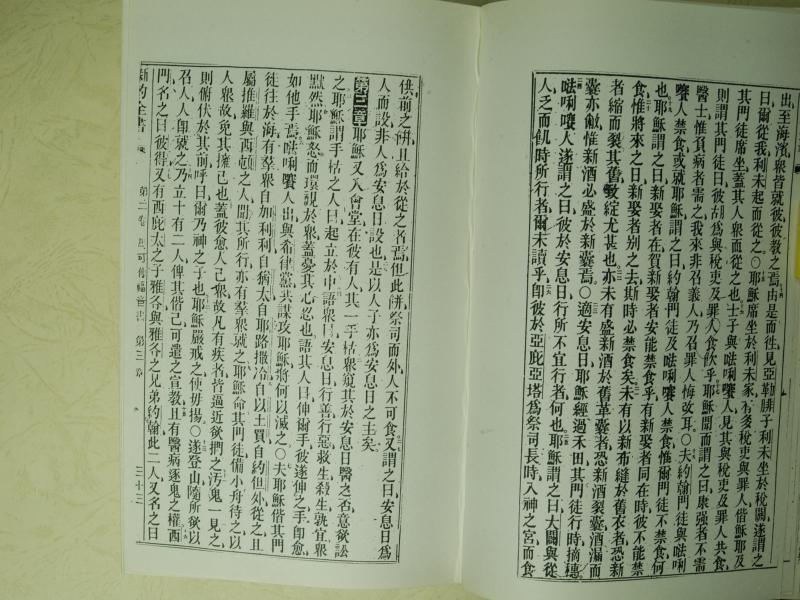 出至海濱衆皆就彼彼教之焉由是而徃見亞勒腓子利未坐於稅關遂謂之
曰爾從我利未起而從之〇耶穌席坐於利未家有多稅吏與罪人偕耶穌及
其門徒席坐蓋其人衆而從之也士子與㕸唎㘔人見其與稅吏及罪人共食
則謂其門徒曰彼胡爲與稅吏及罪人食飲乎耶穌聞而謂之曰康强者不需
醫士惟負病者需之我來非召義人乃召罪人悔攺耳〇夫約翰門徒與㕸唎
人禁食或就耶穌謂之曰約翰門徒及㕸唎人禁食惟爾門徒不禁食何
也耶穌謂之曰新娶者在賀新娶者安能禁食乎有新娶者同在時彼不能禁
食惟將來之日新娶者別之去其時必禁食矣未有以新布縫於舊衣者恐新
者縮而裂其舊綻尤甚也亦未有盛新酒於舊革囊者恐新酒裂囊酒漏而
囊亦惟新酒必盛於新囊焉〇適安息日耶穌經過禾田其門徒行時摘穗
人遂謂之曰彼於安息日行所不宜行者何也耶穌謂之曰大闢與從
人乏而飢時所行者爾未讀乎卽彼於亞庇亞塔爲祭司長時入神之宮而食
供前之餅且給於從之者焉但此餅祭司而外人不可食又謂之曰安息日爲
人而設非人爲安息日設也是以人子亦爲安息日之主矣
第三章耶穌又入會堂在彼有人其一手枯衆窺其於安息日醫之否意欲訟
之耶穌謂手枯之人曰起立於中語衆曰安息日行善行惡救生殺生孰宜衆
默然耶穌怒而環視於衆蓋憂其心忍也語其人曰伸爾手彼遂伸之手卽愈
如他手焉人出與希律黨共謀攻耶穌將何以滅之〇夫耶穌偕其門
徒徃於海有羣衆自加利利自猶太自耶路撒冷自以土買自約但外從之且
屬推羅與西頓之人聞其所行亦有羣衆就之耶穌命其門徒備小舟待之以
人衆故免其擁己也蓋彼愈人已衆故凡有疾者皆逼近欲捫之汚鬼一見之
則俯伏於其前呼曰爾乃神之子也耶穌嚴戒之使毋揚〇遂登山隨所欲以
召人人卽就之乃立十有二人俾其偕己可遣之宣教且有醫病逐鬼之權西
門名之曰彼得又有西庇太之子雅各與雅各之兄弟約翰此二人又名之曰
新約全書 第二卷 馬可傳福音書 第三章 三十三